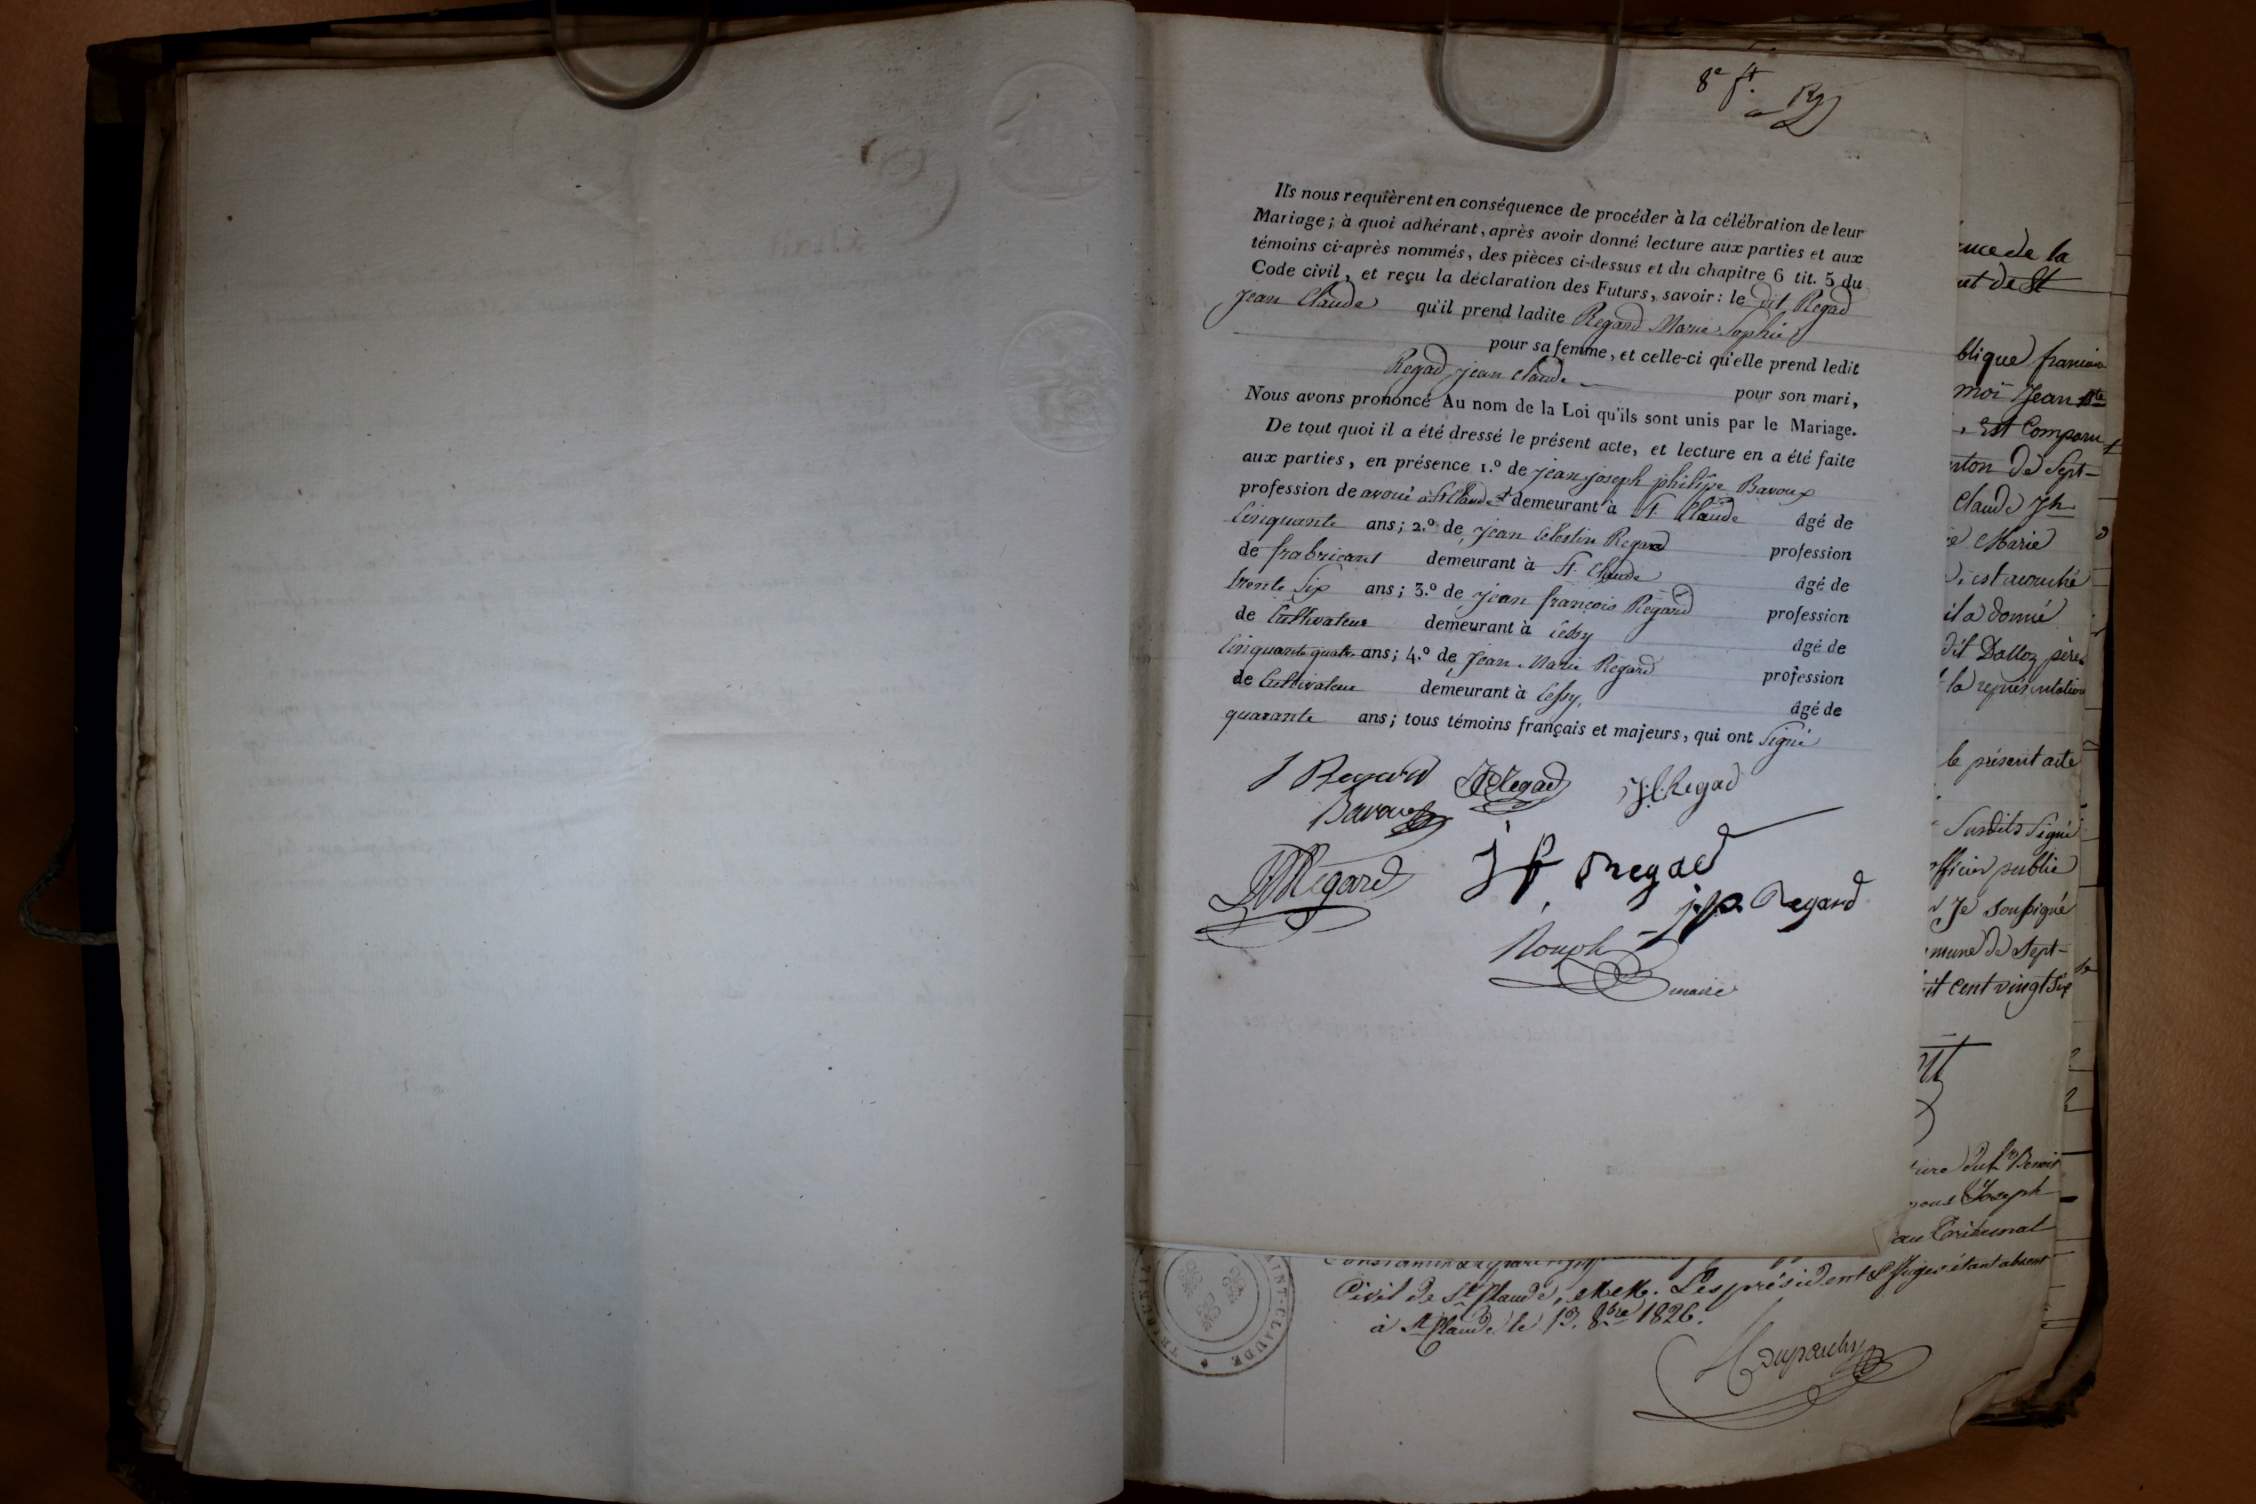 8e f.
Ils nous requièrent en conséquence de procéder à la célébration de leur
Mariage ; à quoi adhérant, après avoir donné lecture aux parties et aux
témoins ci-après nommés, des pièces ci-dessus et du chapitre 6 tit. 5 du
Code civil, et reçu la déclaration des Futurs, savoir : le dit Regad
jean Claude qu'il prend ladite Regard Marie Sophie
pour sa femme, et celle-ci qu'elle prend ledit
Regad jean Claude pour son mari,
Nous avons prononcé Au nom de la Loi qu'ils sont unis par le Mariage.
De tout quoi il a été dressé le présent acte, et lecture en a été faite
aux parties, en présence 1.º de jean joseph philipe Bavoux
profession de avoué à St Claude et demeurant à St. Claude âgé de
Cinquante ans ; 2.º de jean Celestin Regard profession
de frabricant demeurant à St. Claude âgé de
trente Six ans ; 3.º de jean françois Regard profession
de Cultivateur demeurant à Cessy âgé de
Cinquante quatre ans ; 4.º de Jean Marie Regard profession
de Cultivateur demeurant à Cessy, âgé de
quarante ans ; tous témoins français et majeurs, qui ont Signé
J Regard Regad J. C. Regad
Bavoux
JMRegard J f Regad
j. p. Regard
maire
nce de la
et de St
blique francaise
moi Jean Bte
, Est Comparu
cton de Sept-
Claude Jh
Marie
est accouché
il a donné
dit Dalloz père
la représentation
le présent acte
Susdits Signé
officier public
Je Soussigné
mune de Sept-
it Cent vingt Six
Benoit
Joseph
au Tribunal
Civil de St Claude, MM. Les président & Juges étant absent
à St Claude le 13. 8bre 1826.
Dupouchy
TRIBUNAL
SAINT-CLAUDE